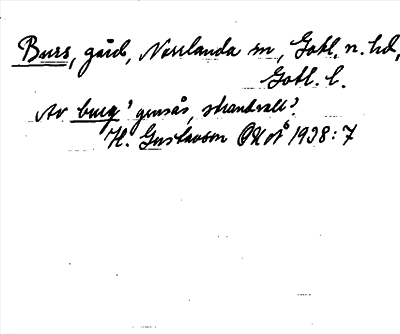 Burs, gård, Norrlanda sn, Gotl. n. hd,
Gotl. l.
Av burg 'grusås, strandvall'.
H. Gustavson 1938: 7